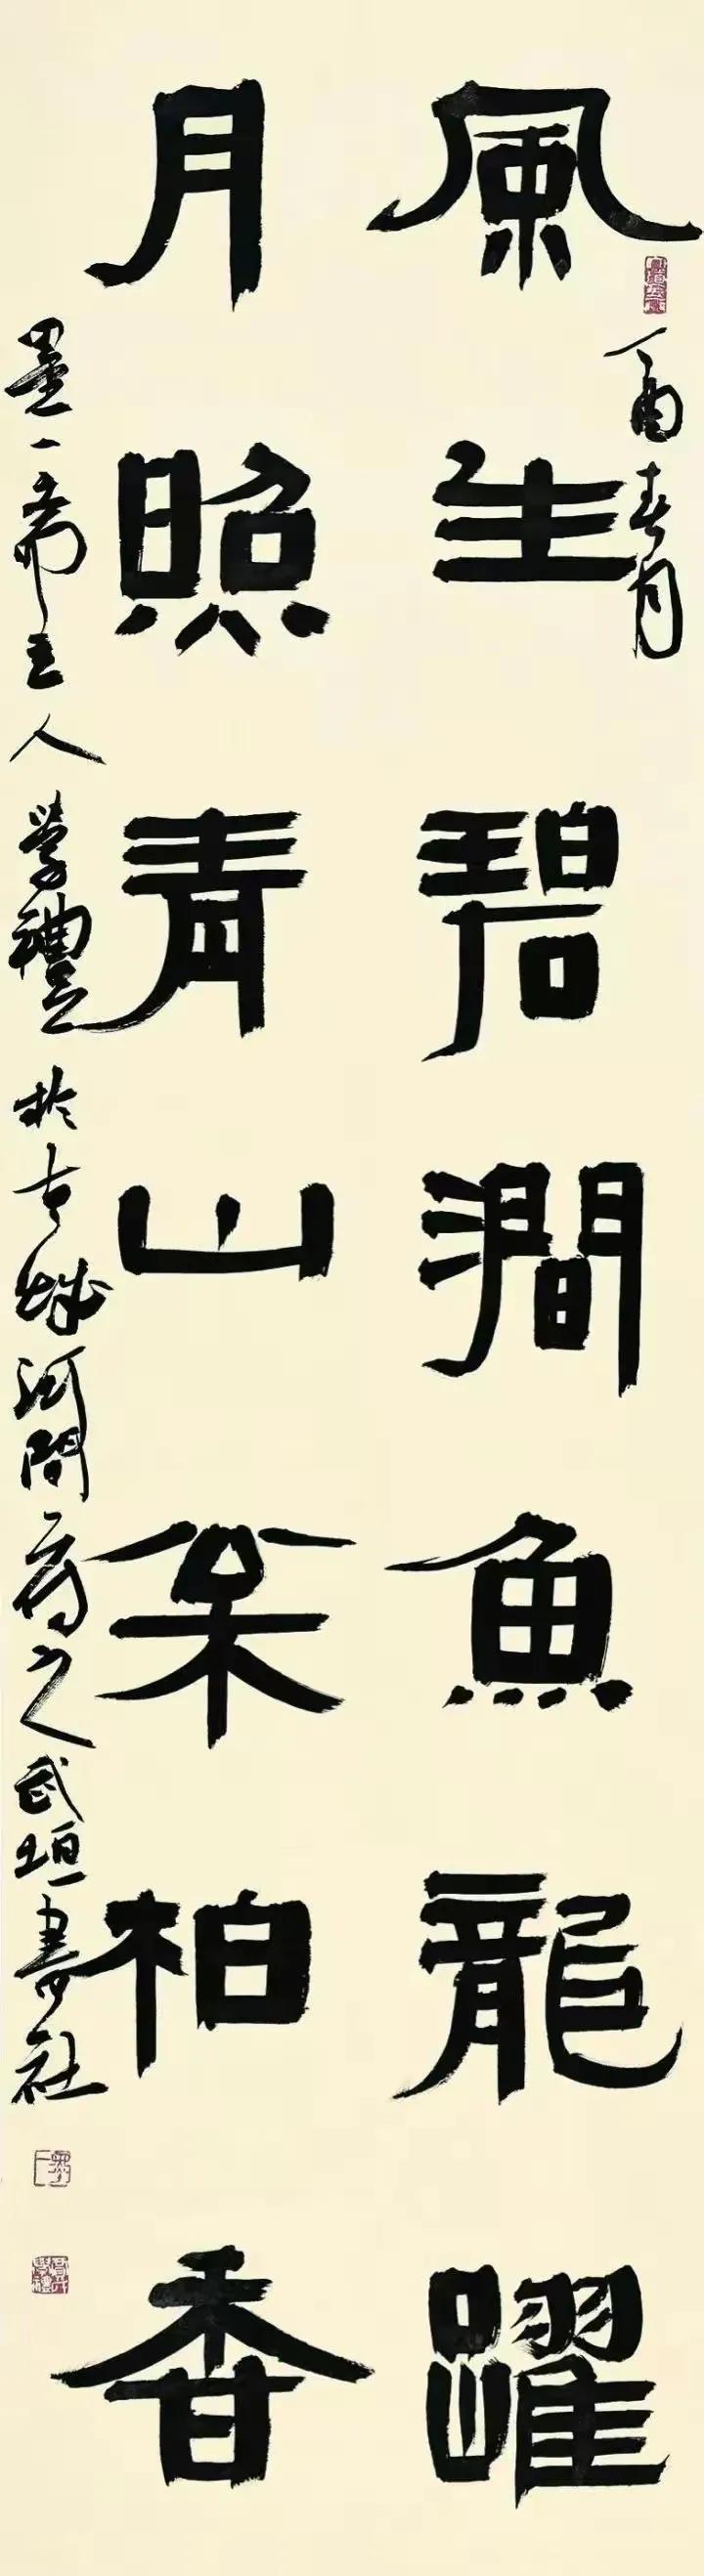 風生碧澗魚龍躍
酉春月
月照青山松柏香
墨一齋主人學禮 於古城河間 之 武垣書社